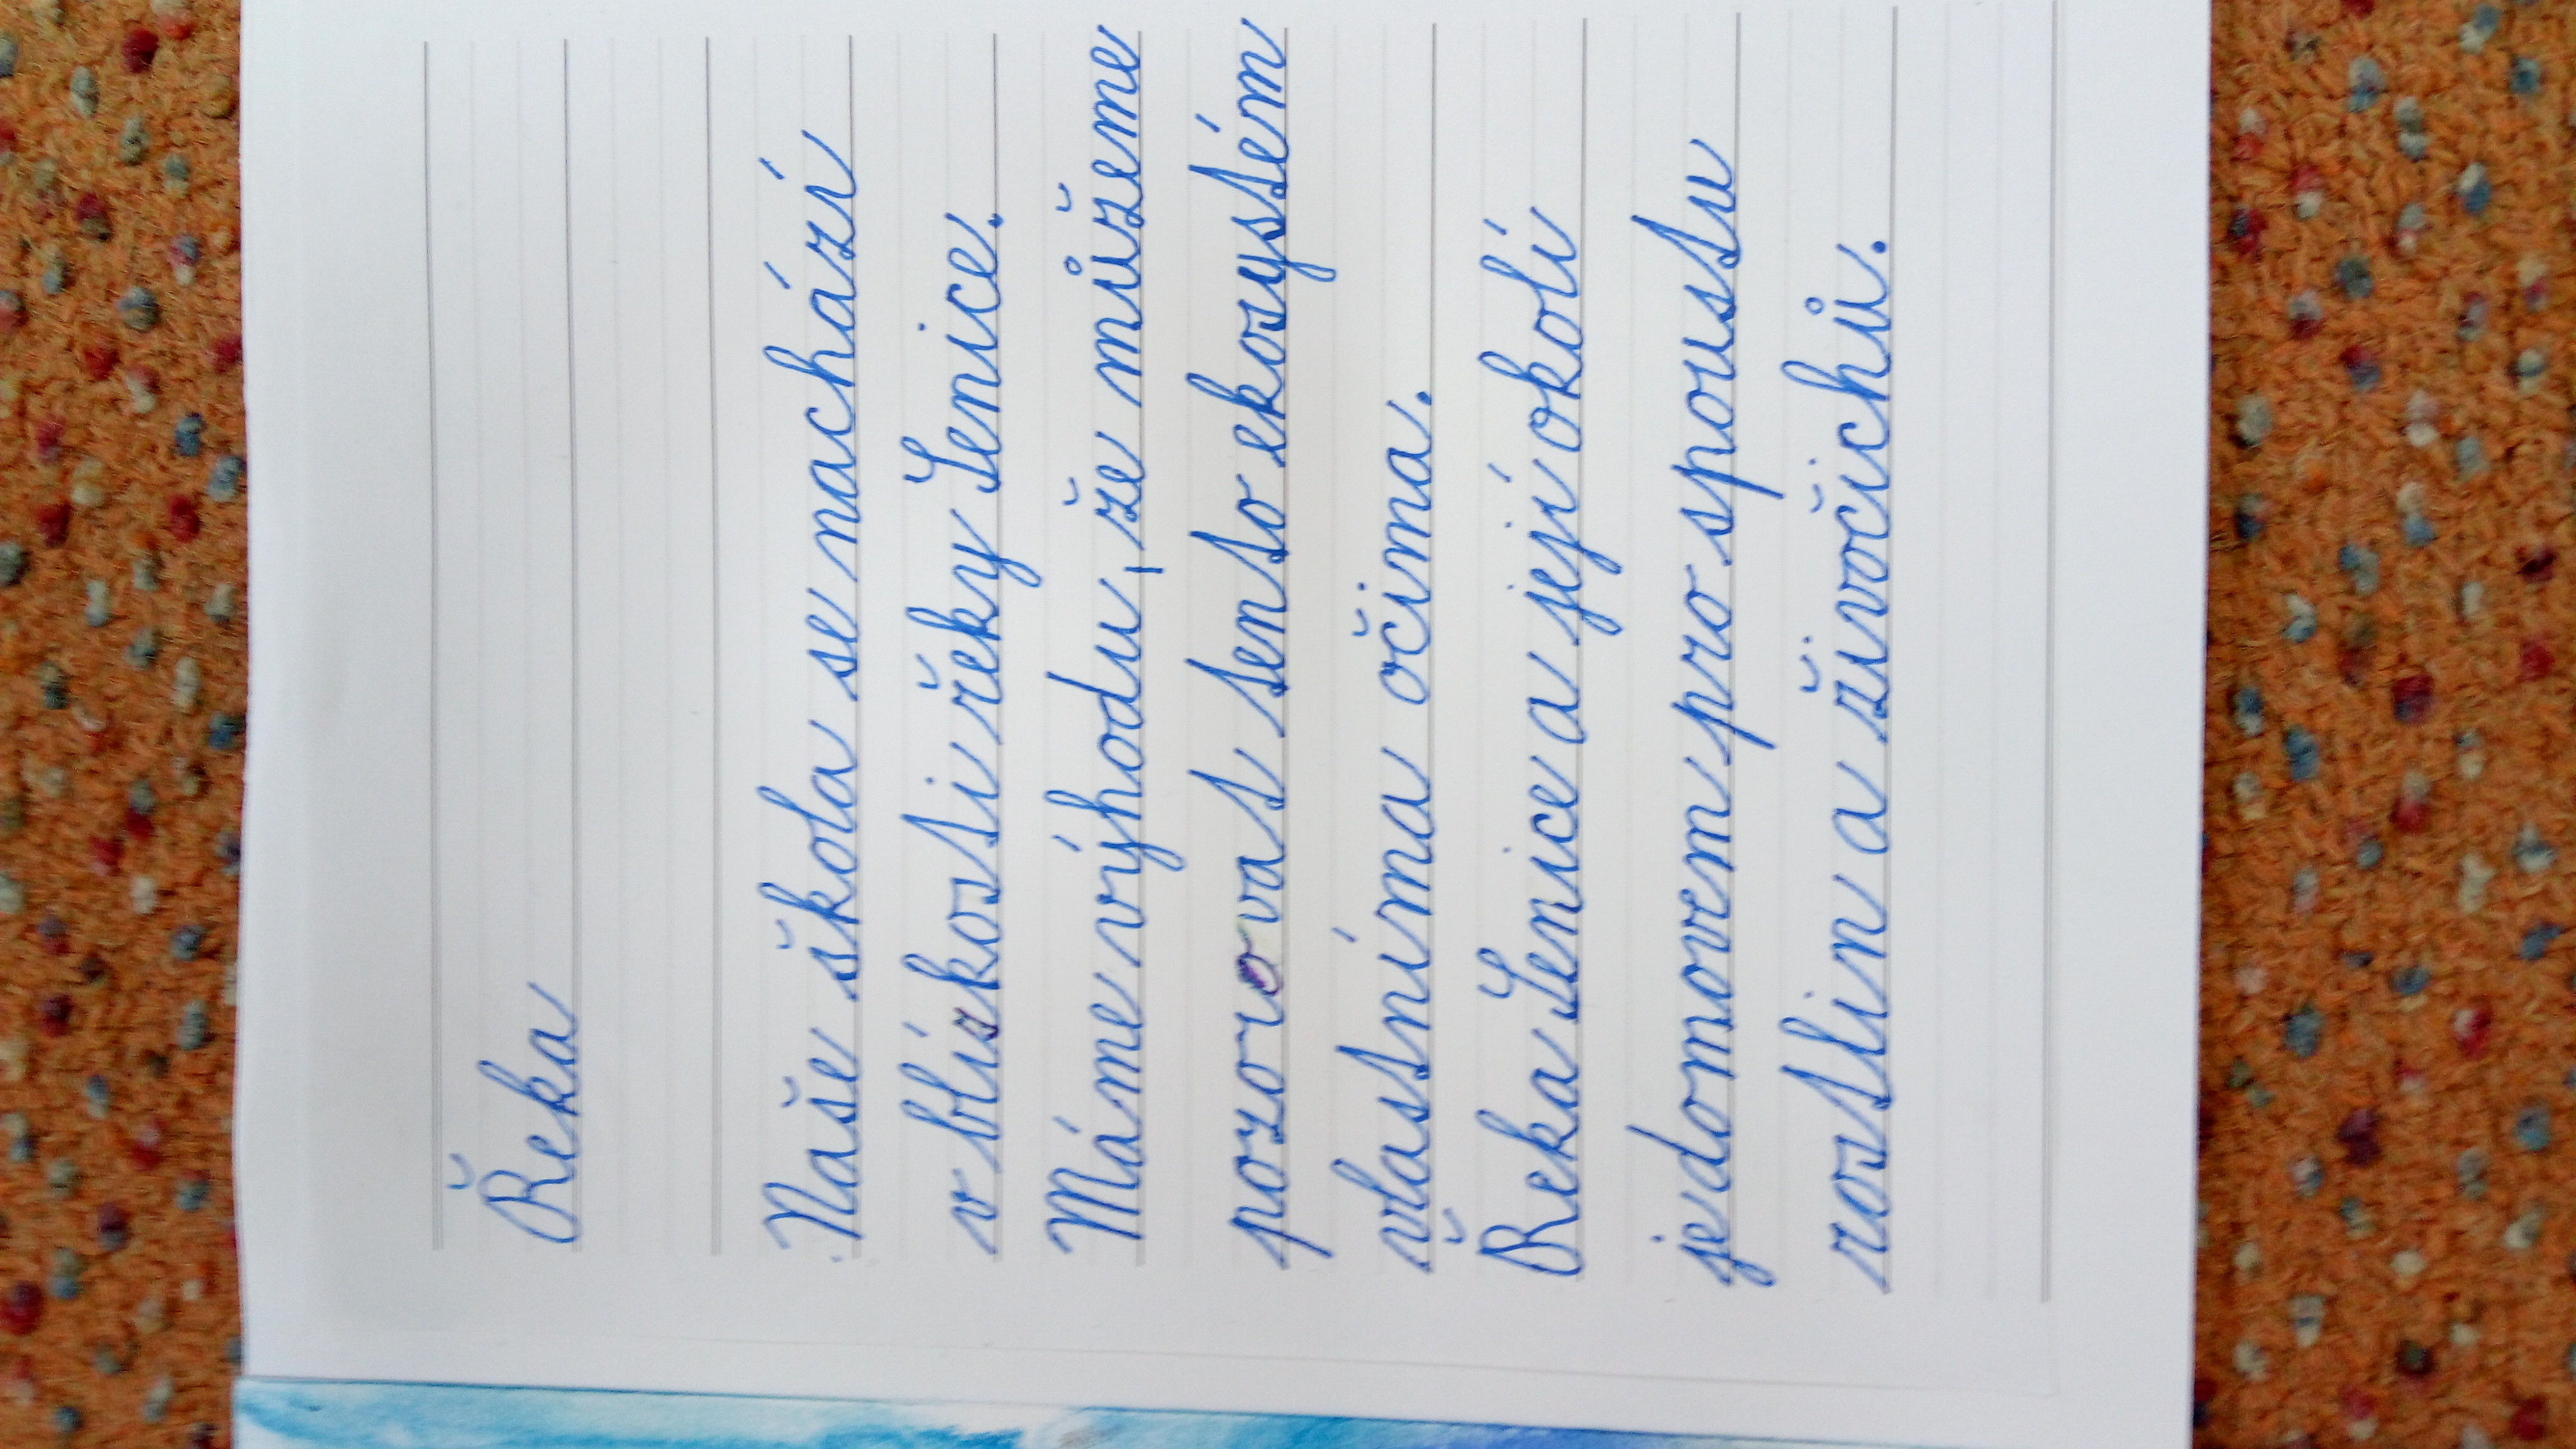 Řeka
Naše škola se nachází
v blízkosti řeky Senice.
Máme výhodu, že můžeme
pozorovat tento ekosystém
vlastníma očima.
Řeka Senice a její okolí
je domovem pro spoustu
rostlin a živočichů.